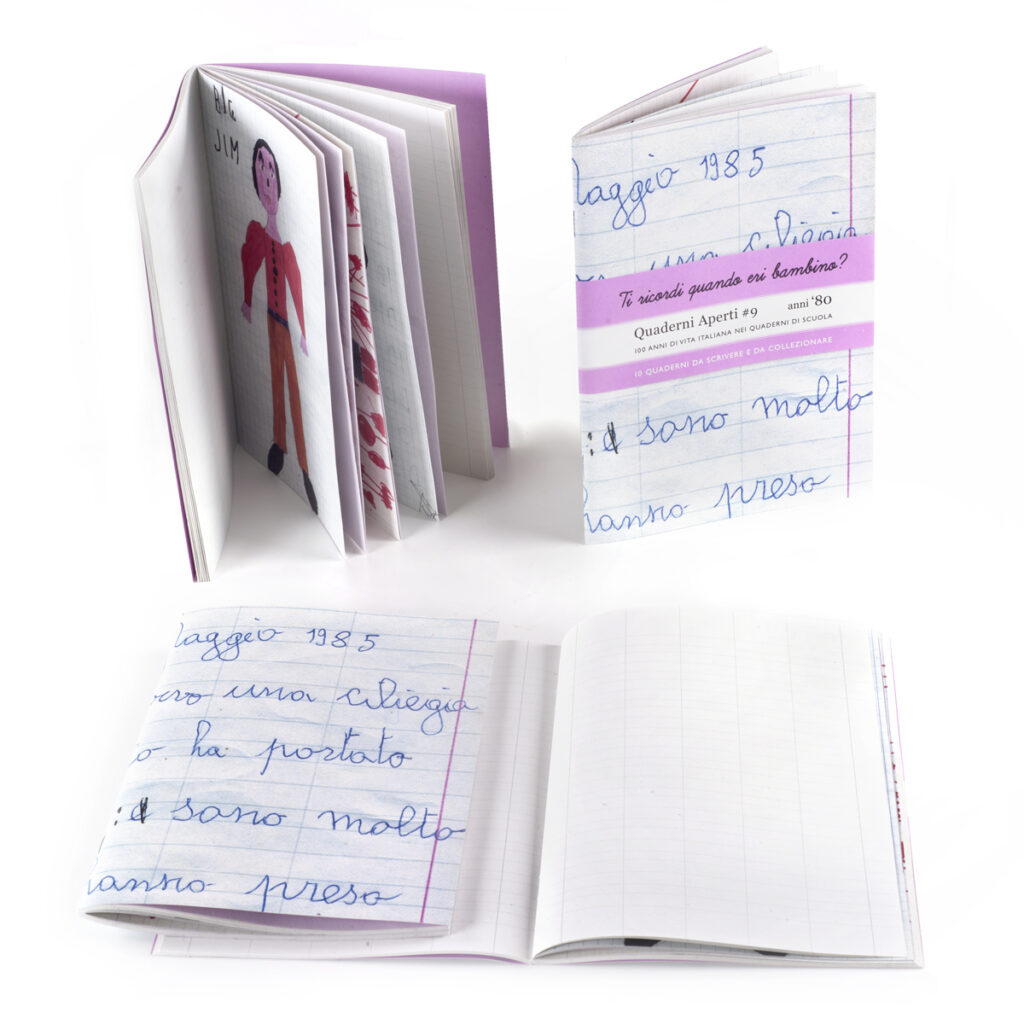 BIG
JIM
laggio 1985
una ciliegia
Ti ricordi quando eri bambino?
Quaderni Aperti #9 anni ‘80
100 ANNI DI VITA ITALIANA NEI QUADERNI DI SCUOLA
10 QUADERNI DA SCRIVERE E DA COLLEZIONARE
: sono molto
hanno preso
laggio 1985
una ciliegia
o ha portato
: sono molto
hanno preso